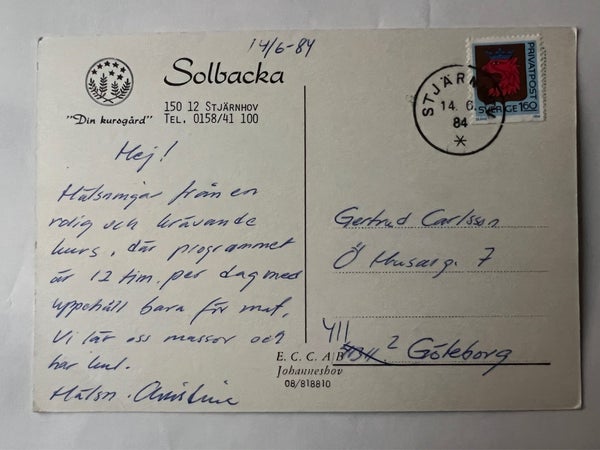 14/6-84
Solbacka
150 12 STJÄRNHOV
TEL. 0158/41 100
"Din kursgård"
Hej!
Hälsningar från en
rolig och krävande
kurs, där programmet
är 12 tim. per dag med
uppehåll bara för mat.
Vi lär oss massor och
har kul.
Hälsn. Christine
PRIVATPOST
SVERIGE 160
STJÄRNHOV
14. 6.
84
*
Gertrud Carlsson
Ö Husarg. 7
411
2 Göteborg
E. C. C. A B
Johanneshov
08/818810